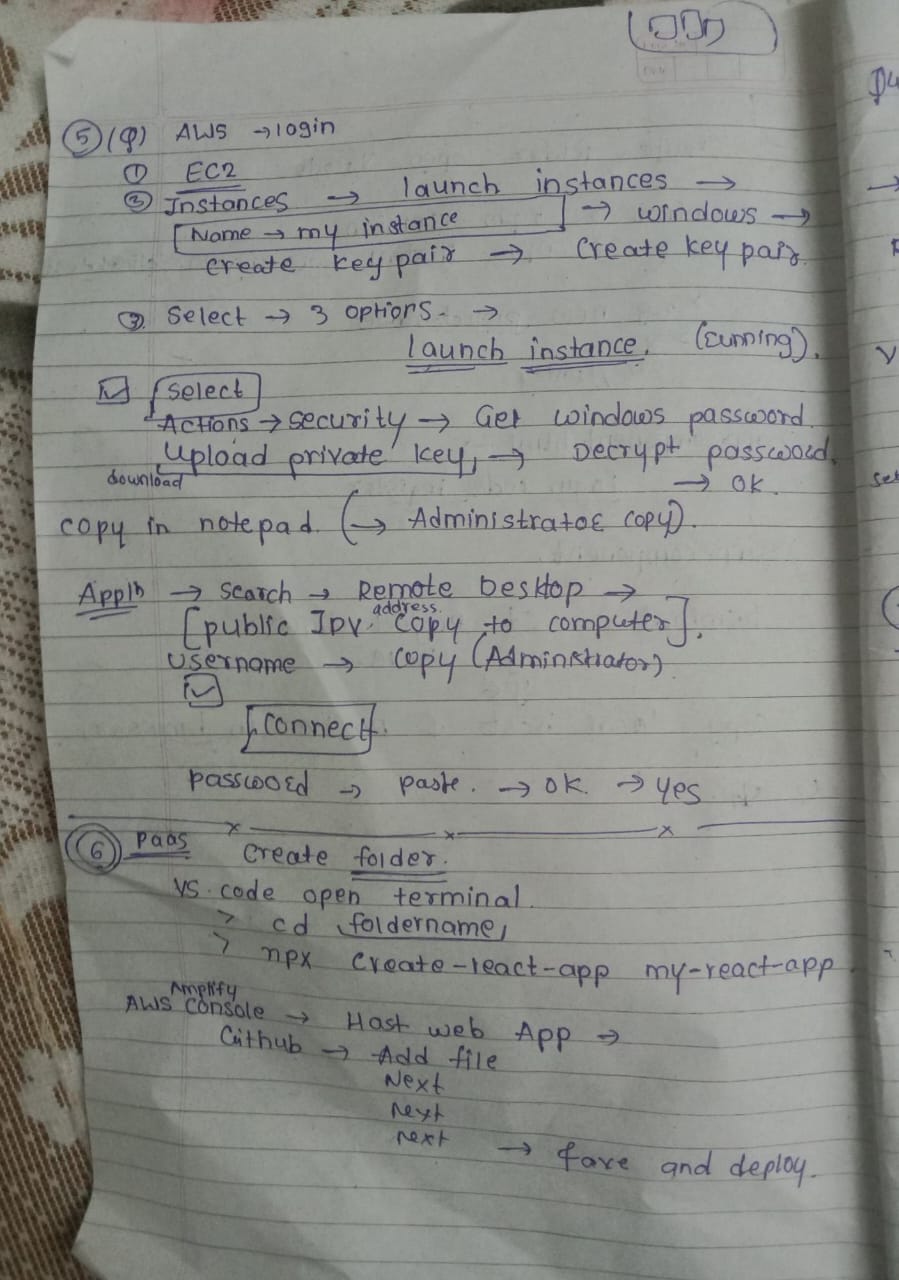 ⑤ (Q) AWS → login
① EC2
② Instances → launch instances →
Name → my instance → windows →
create key pair → Create key pair
③ Select → 3 options. →
launch instance. (running).
☑ select
Actions → security → Get windows password.
Upload private key, → Decrypt password.
download → OK.
copy in notepad. (→ Administrator copy).
Appln → search → Remote Desktop →
address.
[public IPV. copy to computer].
Username → copy (Administrator)
☑
connect
password → paste. → OK. → yes
⑥ paas create folder.
VS. code open terminal.
> cd foldername,
> npx create-react-app my-react-app.
Amplify
AWS console → Host web App →
Github → Add file
Next
Next
next → save and deploy.